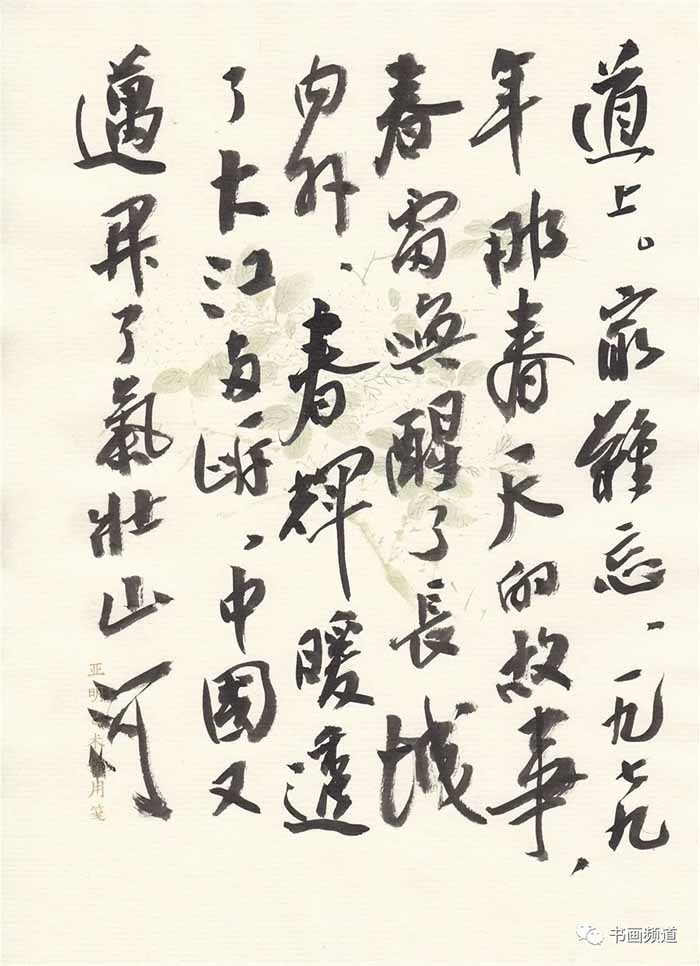 道上。最難忘、一九七九
年那春天的故事，
春雷喚醒了長城
内外、春輝暖透
了大江兩岸、中國又
邁開了氣壯山河
亚明 用笺
书画频道